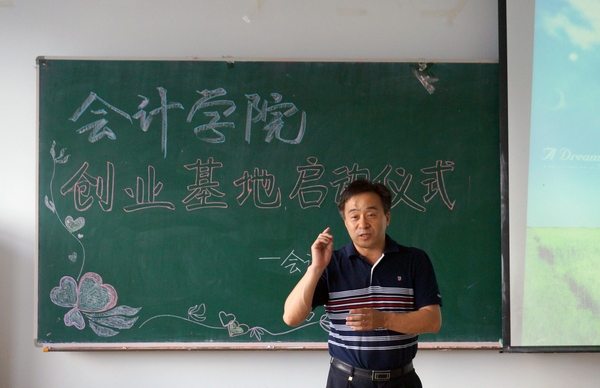 会计学院
创业基地启动仪式
一会
A Dream